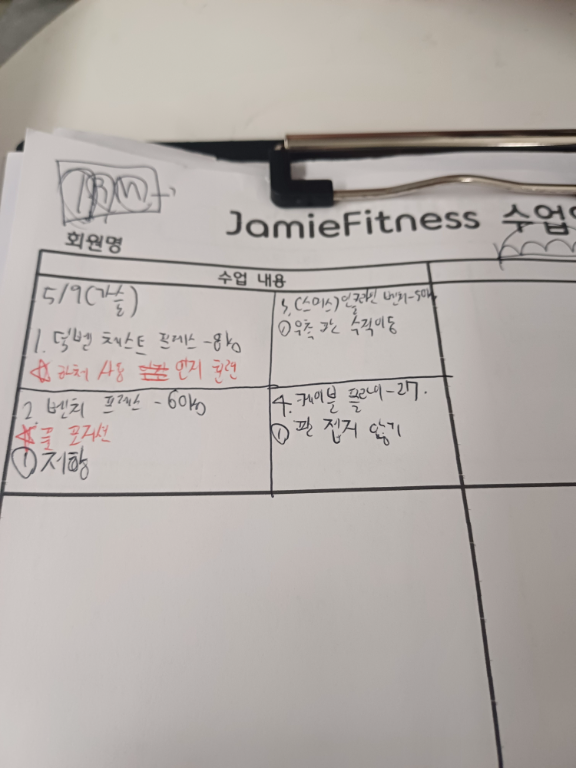 JamieFitness 수업
회원명
수업 내용
5/9(가슴)
1. 덤벨 체스트 프레스 - 8kg
☆ 하체 사용 인지 훈련
2 벤치 프레스 - 60kg
☆ 풀 포지션
① 저항
3. (스미스) 인클라인 벤치 - 50kg
① 우측 팔 수직이동
4. 케이블 플라이 - 27.
① 팔 접지 않기